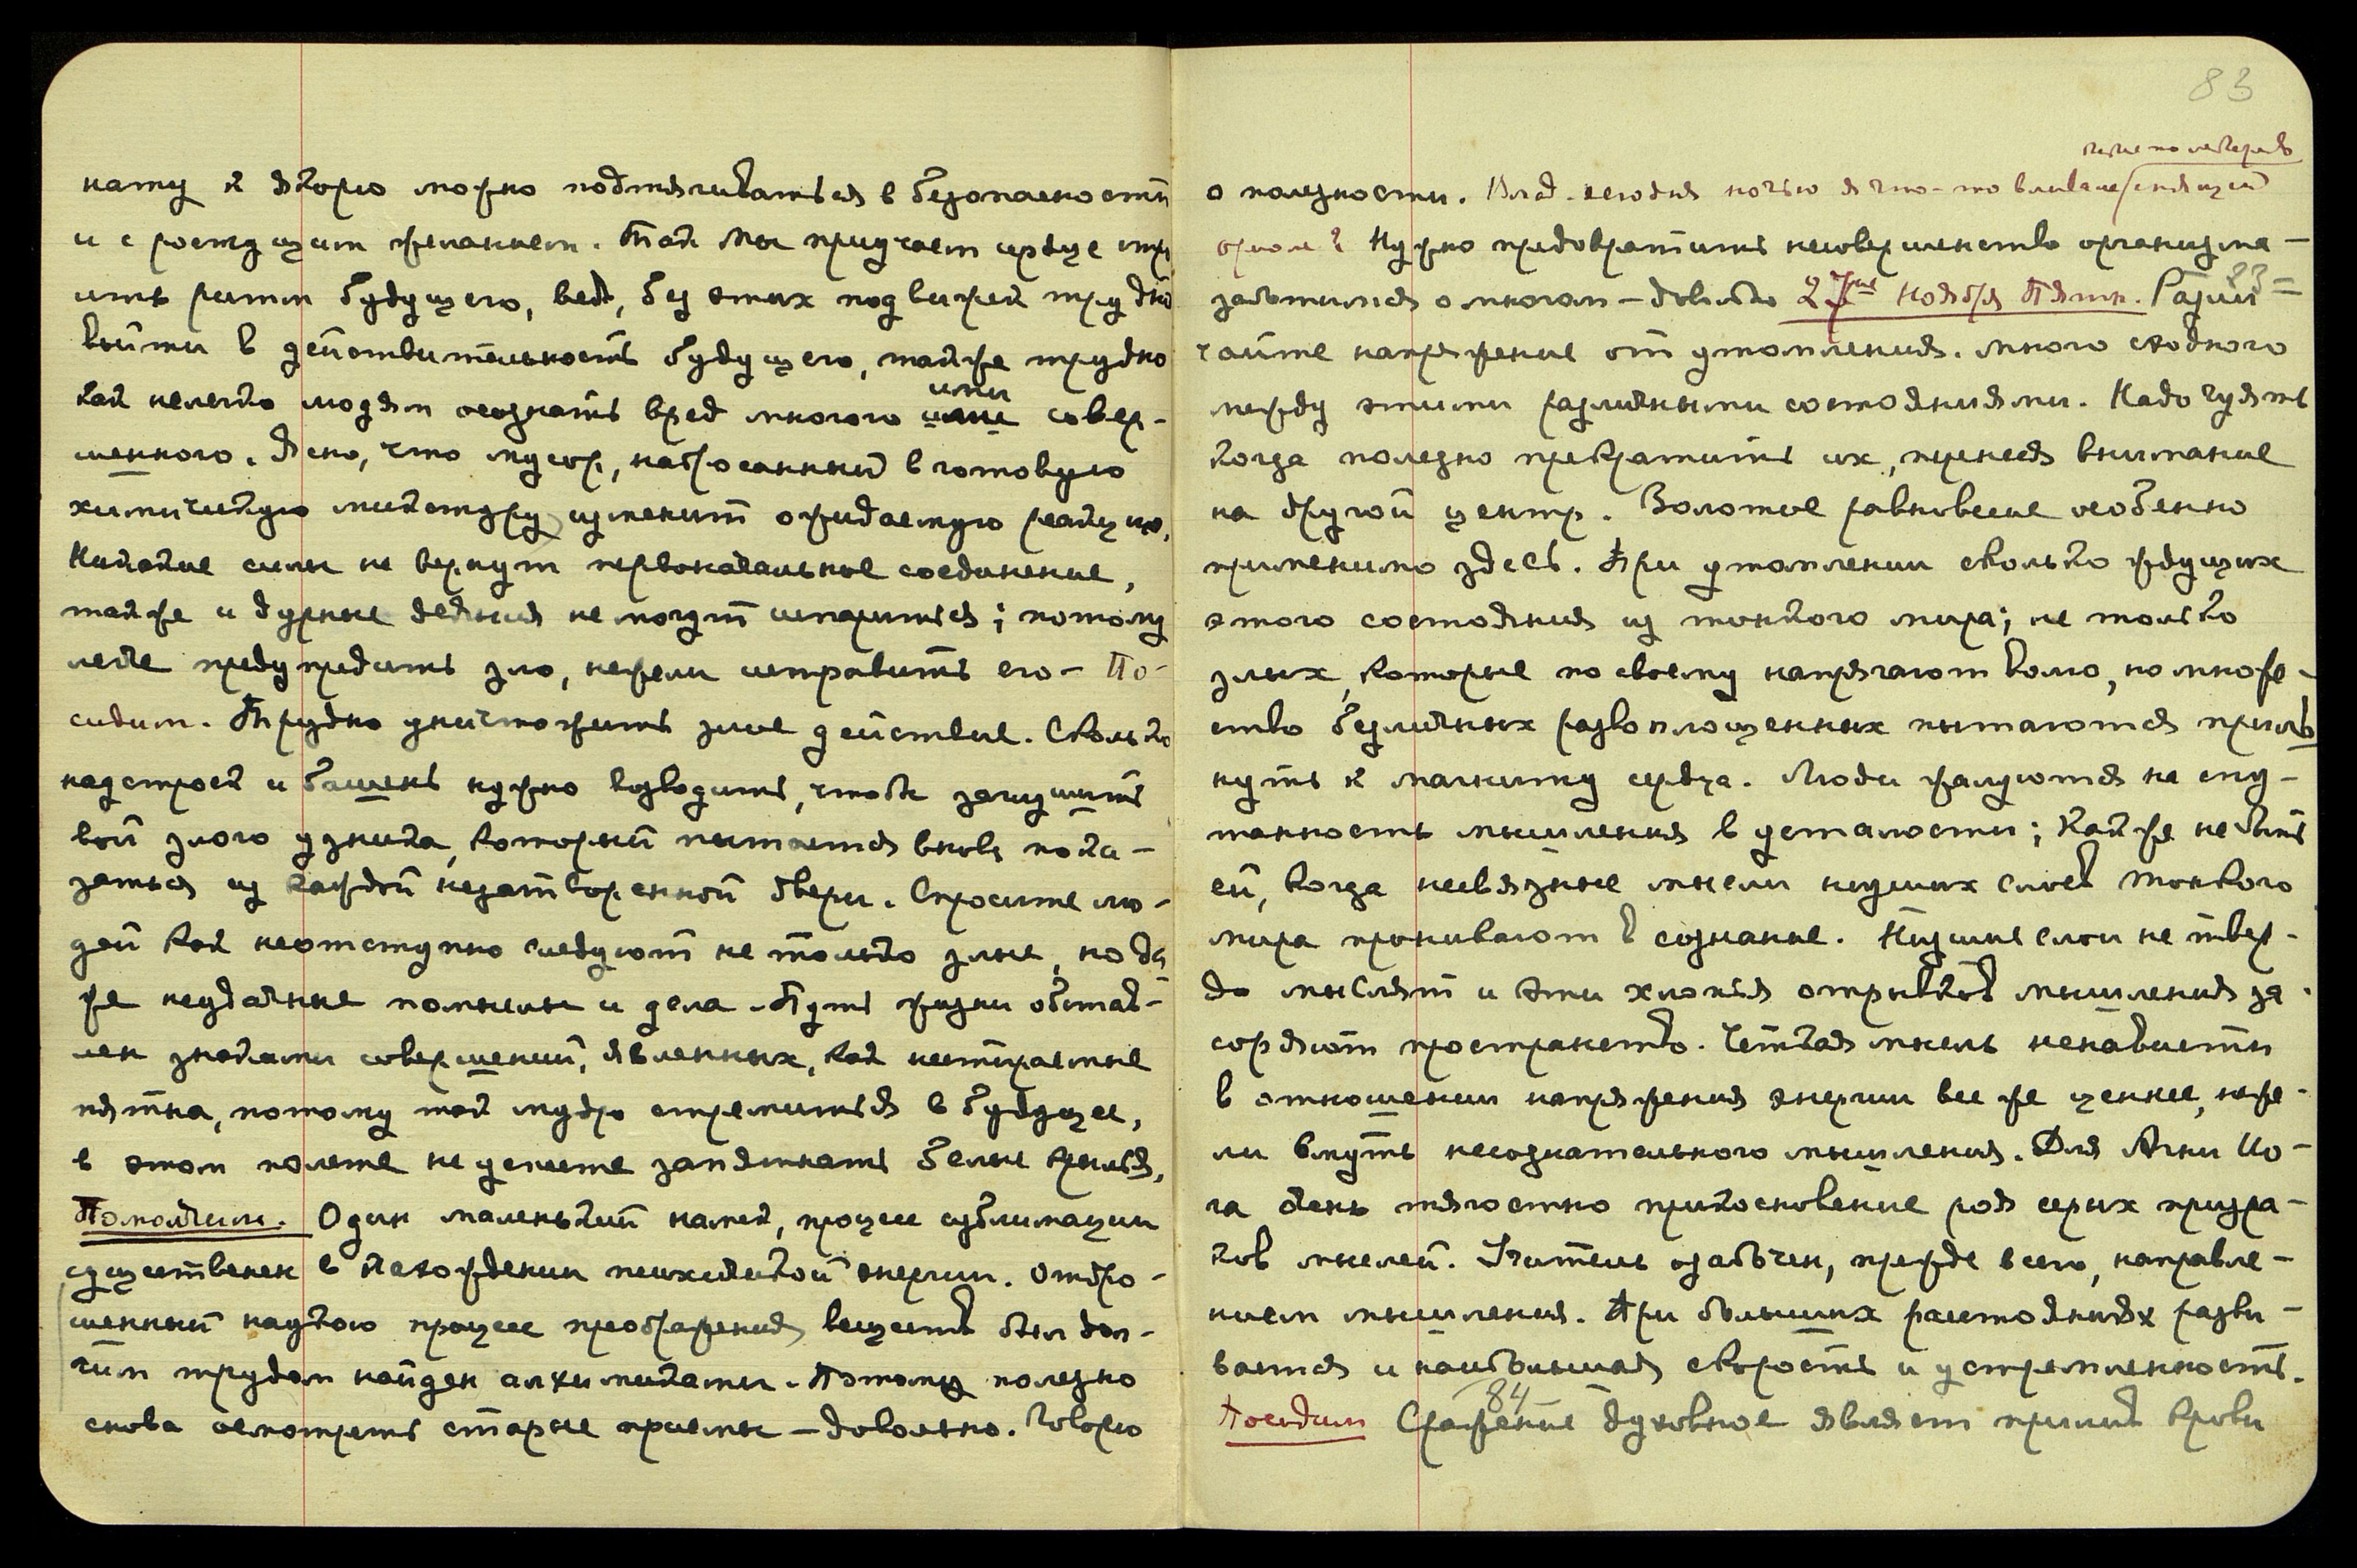 нату к якорю можно подтягиваться в безопасности
и с растущим желанием. Так мы приучаем сердце стр
ить ритм будущего, ведь, без этих подвижек трудно
войти в действительность будущего, также трудно
Как нелегко людям осознать вред многого ими совер-
шенного. Ясно, что мусор, набросанный в готовую
химическую микстуру изменит ожидаемую реакцию.
Никакие силы не вернут первоначальное соединение,
также и дурные деяния не могут испариться; потому
легче предупредить зло, нежели исправить его – По-
сидим. Трудно уничтожить злое действие. Сколько
надстроек и башень нужно возводить, чтобы заглушить
вой злого узника, который пытается вновь пока-
заться из каждой незатворенной двери. Спросите лю-
дей как неотступно следуют не только злые, но да
же неудачные помыслы и дела. Путь жизни обстав-
лен знаками совершений, явленных, как нестираемые
пятна, потому так мудро стремиться в будущее,
в этом полете не успеете запятнать белые крылья,
Помолчим. Один маленький намек, процесс сублимации
существенен в нахождении психической энергии. Отбро-
шенный наукою процесс преображения веществ был дол-
гим трудом найден алхимиками. Поэтому полезно
снова осмотреть старые приемы – довольно. Говорю
83
о полезности. Влад. сегодня ночью я что-то
Нужно предотвратить несовершенство организма –
заботимся о многом – довольно 27го Ноября Пятн. Разли
83
чайте напряжение от утомления. много сходного
между этими различными состояниями. Надо чуять
когда полезно прекратить их, перенеся внимание
на другой центр. Золотое равновесие особенно
применимо здесь. При утомлении сколько ждущих
этого состояния из тонкого мира; не только
злых, которые по своему напрягают волю, но множе-
ство безличных развоплощенных пытаются прильº
нуть к магниту сердца. Люди жалуются на спу-
танность мышления в усталости; Как же не быть
ей, когда несвязные мысли низших слоев тонкого
мира проникают в сознание. Низшие слои не твер-
до мыслят и эти хлопья отрывков мышления за-
соряют пространство. Четкая мысль ненависти
в отношении напряжения энергии все же ценнее, неже-
ли вмуть несознательного мышления. Для Агни Йо-
га очень тягостно прикосновение роя серых призра-
ков мыслей. Учитель озабочен, прежде всего, направле-
нием мышления. При больших расстояниях разви-
вается и наибольшая скорость и устремленность.
84
Посидим Сражение духовное являет прилив крови